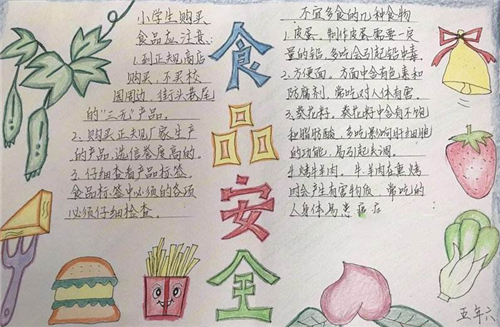 小学生购买
食品应注意:
1、到正规商店
购买,不买校
园周边、街头巷尾
的"三无"产品。
2、购买正规厂家生产
的产品,选信誉度高的。
3、仔细查看产品标签。
食品标签中必须的各项
必须仔细检查。
食品安全
不宜多食的几种食物
1、皮蛋。制作皮蛋需要一定
量的铅,多吃会引起铅中毒。
2、方便面。方面中含有色素和
防腐剂,常吃对人体有害。
3、葵花籽。葵花籽中含有不饱
和脂肪酸,多吃影响肝细胞
的功能,易引起失调。
4、烤牛羊肉。牛、羊肉在熏烤
时会产生有害物质,常吃的
人身体易患癌症
五年六